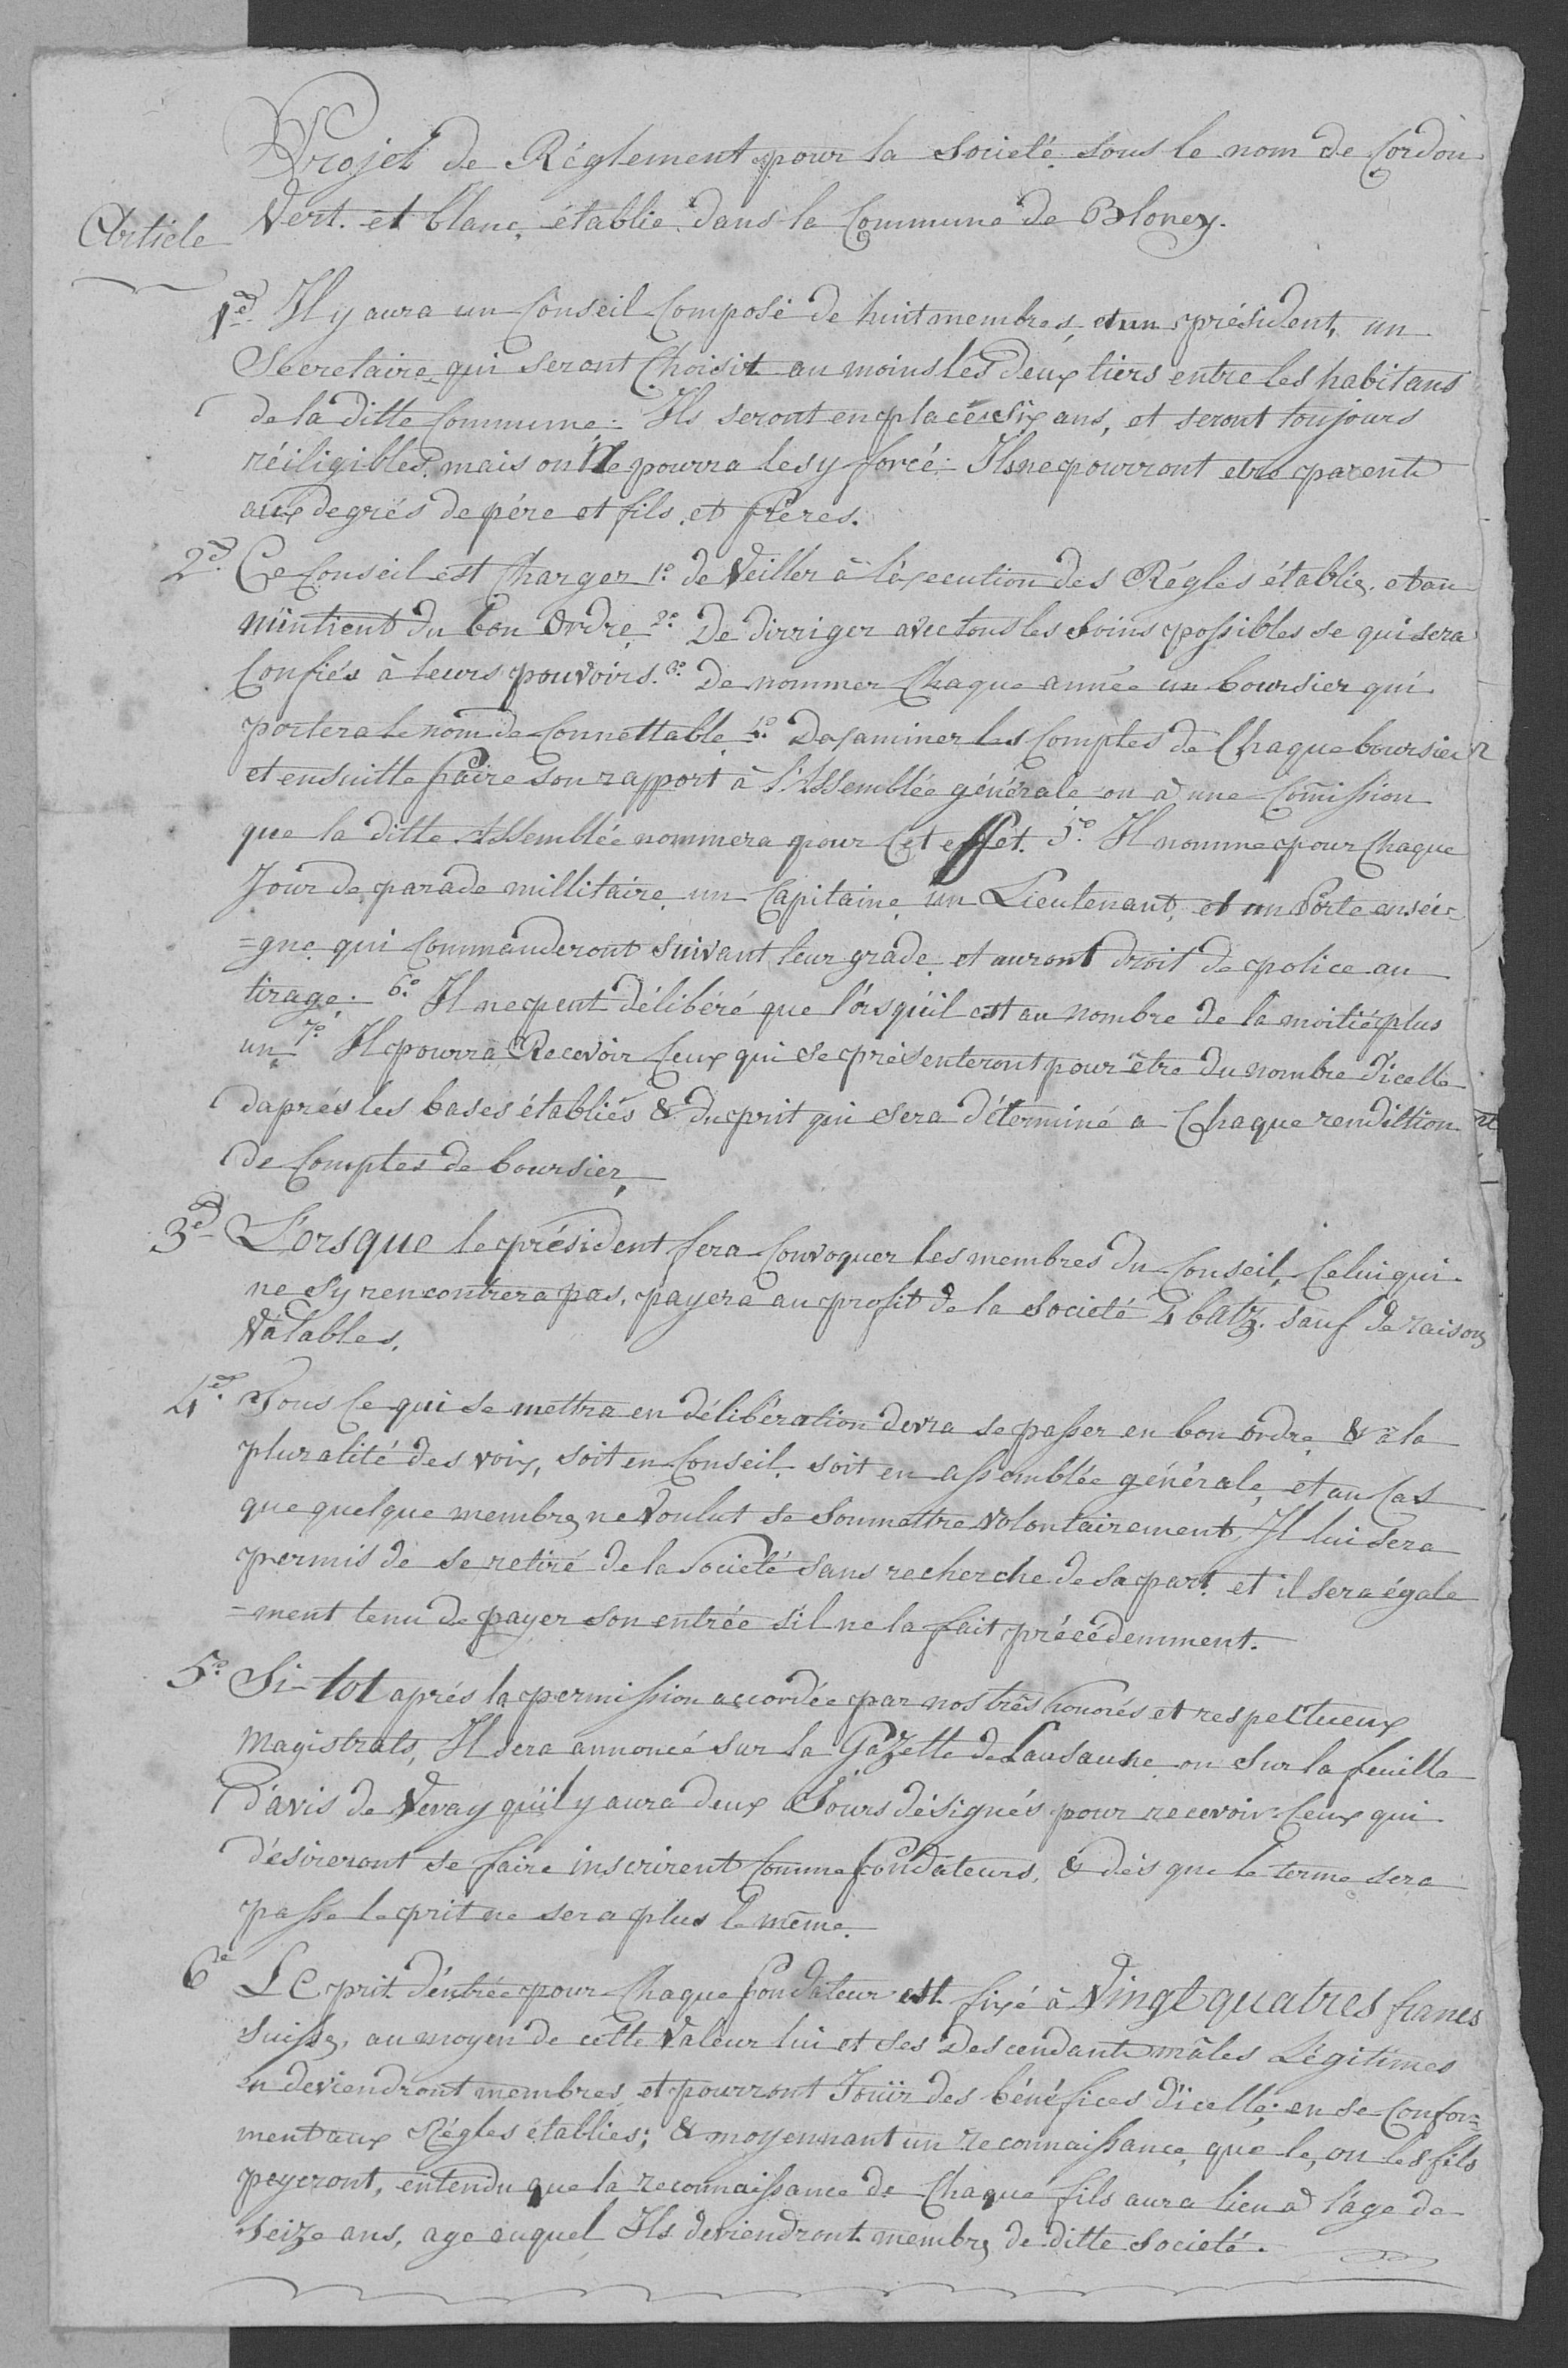 Projet de Réglement pour la Societé sous le nom de Cordon
Vert. et blanc, établie dans la Commune de Bloney.
Article
1er. Il y aura un Conseil Composé de huit membres, et un président, un
Secretaire qui seront Choisit au moins les deux tiers entre les habitans
de la ditte Commune. Ils seront en place six ans, et seront toujours
réiligibles, mais on Ne pourra les y forcé. Ils ne pourront etre parents
aux degrés de pére et fils, et frères.
2e. Ce Conseil est Charger 1o. de Veiller à l'éxecution des Régles établis. et au
mintient du bon Ordre, 2o. De dirriger avec tous les soins possibles se qui sera
Confiés à leurs pouvoirs. 3o. De nommer Chaque année un boursier qui
portera le nom de Connettable 4o. Dexaminer les Comptes de Chaque boursier
et ensuitte faire son rapport à l'Assemblée générale ou à une Comission
que la ditte Assemblée nommera pour Cet effet. 5o. Il nomme pour Chaque
Jour de parade millitaire un Capitaine, un Lieutenant, et un Porte ensei=
=gne qui Commanderont suivant leur grade, et auront droit de police au
tirage. 6o. Il ne peut délibéré que lorsqu'il est au nombre de la moitié plus
un, 7o. Il pourra Recevoir Ceux qui se présenteront pour être du nombre d'icelle
daprés les bases établiés & du prit qui sera déterminé a Chaque rendittion
de Comptes de boursier,
3e. Lorsque le président fera Convoquer les membres du Conseil, Celui qui
ne s'y rencontrera pas, payera au profit de la Societé 4 batz. sauf de raisons
Valables.
4e. Tous Ce qui se mettra en délibération devra se passer en bon ordre, & à la
pluralité des voix, soit en Conseil, soit en assemblée générale, et au Cas
que quelque membres ne Voulut se soumettre Volontairement, Il lui sera
permis de se retiré de la Societé sans recherche de sa part et il sera égale
=ment tenu de payer son entrée s'il ne la fait précédemment.
5e. Si-tot aprés la permission accordée par nos très honorés et respectueux
Magistrats, Il sera annoncé sur la Gazette de Lausanne ou sur la feuille
d'avis de Vevay qu'il y aura deux Jours désignés pour recevoir Ceux qui
désireront se faire inscrirent Comme fondateurs, & dés que le terme sera
passe le prit ne sera plus le même.
6e Le prit d'entrée pour Chaque fondateur est fixé à Vingt quatres francs
suisse, au moyen de cette Valeur lui et ses Descendants mâles Légitimes
en deviendront membres, et pourront Jouïr des bénéfices d'icelle, en se Confor=
ment aux Régles établies; & moyennant un reconnaissance, que le, ou les fils
peyeront, entendu que la reconnaissance de Chaque fils aura lieu à l'age de
seize ans, age auquel Ils deviendront membres de ditte societé.